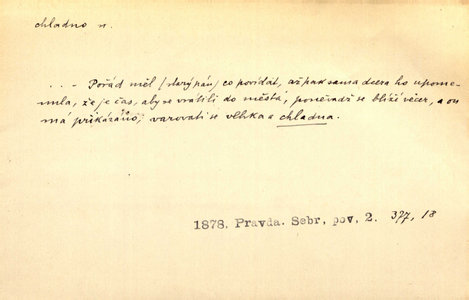 chladno n.
... - Pořád měl /starý pán/ co povídat, až pak sama dcera ho upome-
nula, že je čas, aby se vrátili do města, poněvadž se blíží večer, a on
má přikázáno, varovati se vlhka a chladna.
1878. Pravda. Sebr. pov. 2. 377, 18